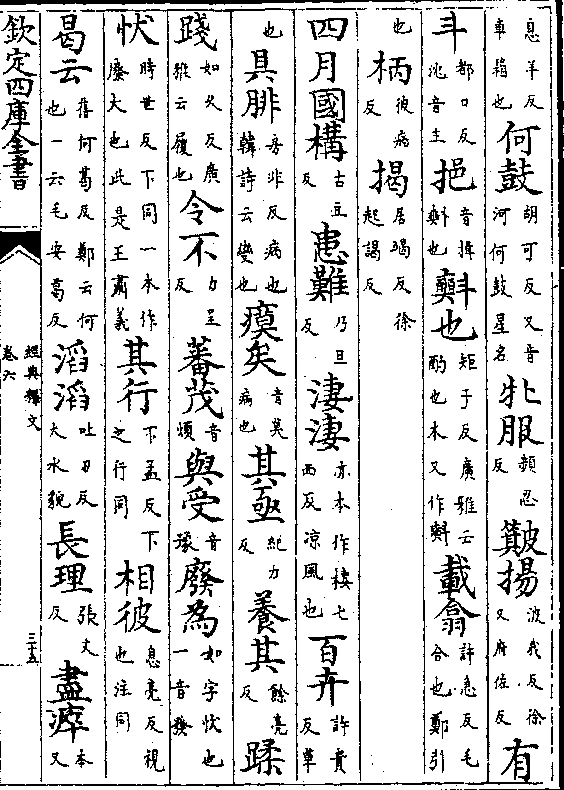 息羊反車箱也何鼓胡可反又音河何鼓星名牝服頻忍反簸揚波我反徐又府佐反有
斗都口反沈音主挹音揖㪺也㪺也矩于反廣雅云酌也木又作㪺載翕許急反毛合也鄭引
也柄彼病反揭居竭反徐起謁反
四月國構古豆反患難乃旦反淒淒亦本作棲七西反凉風也百卉許貴反草
也具腓房非反病也韓詩云變也瘼矣音莫病也其亟紀力反養其餘亮反蹂
踐如久反廣雅云履也令不力呈反蕃茂音煩與受音豫廢為如字忕也一音發
忕時世反下同一本作廢大也此是王肅義其行下孟反下之行同相彼息亮反視也注同
曷云舊何葛反鄭云何也一云毛安葛反滔滔吐刀反大水貌長理張丈反盡瘁本又
欽定四庫全書
經典釋文
卷六
三十五